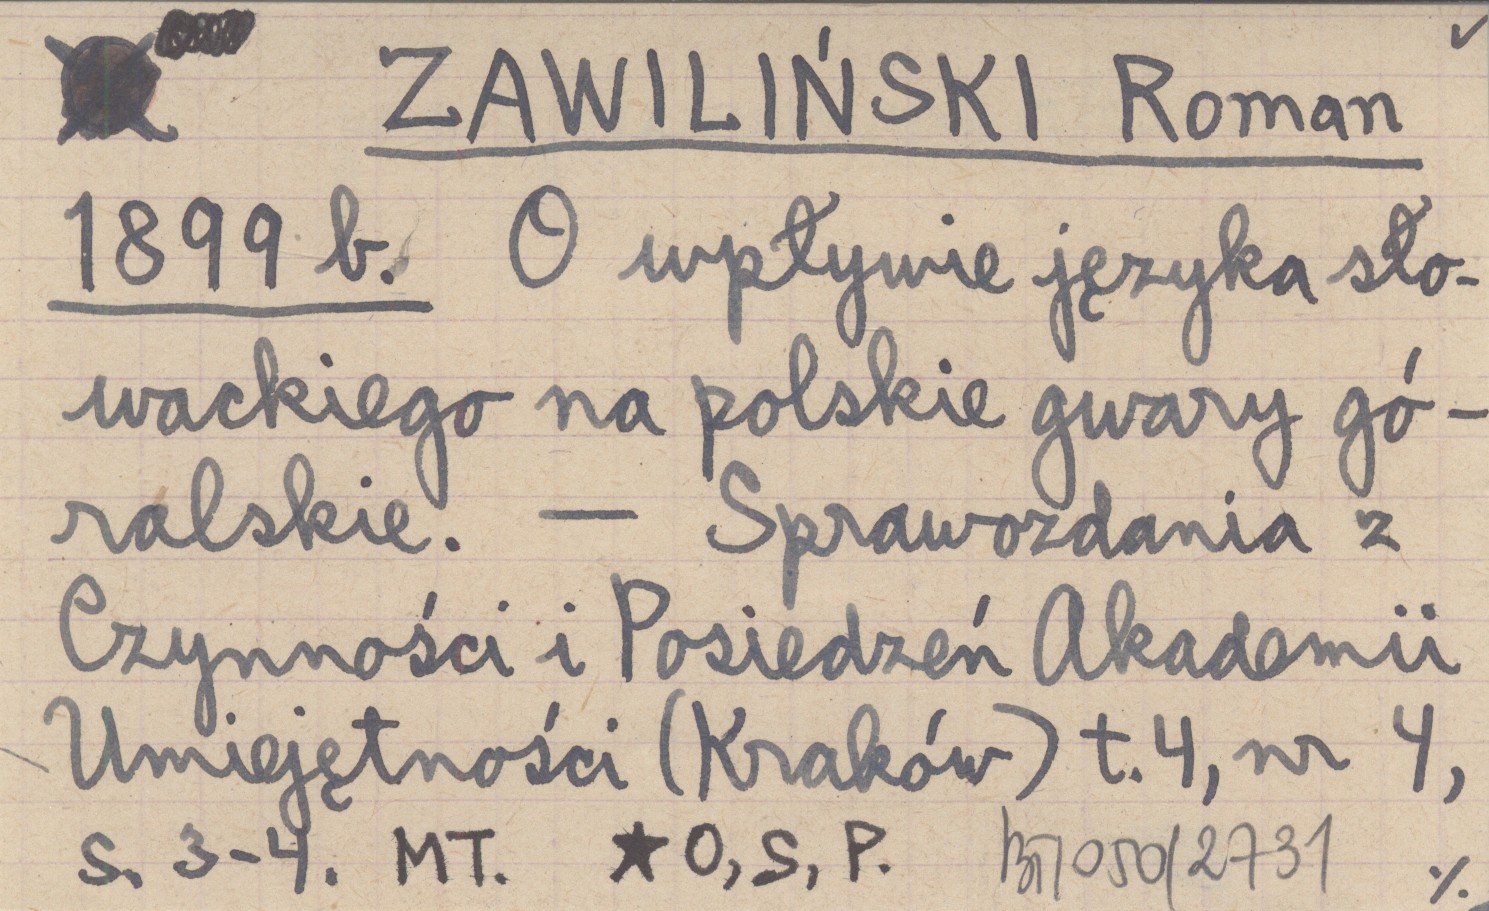 ZAWILIŃSKI Roman
1899 b. O wpływie języka sło-
wackiego na polskie gwary gó-
ralskie. — Sprawozdania z
Czynności i Posiedzeń Akademii
Umiejętności (Kraków) t. 4, nr 4,
s. 3-4. MT. ★ O, S, P. 050/2731 ./.